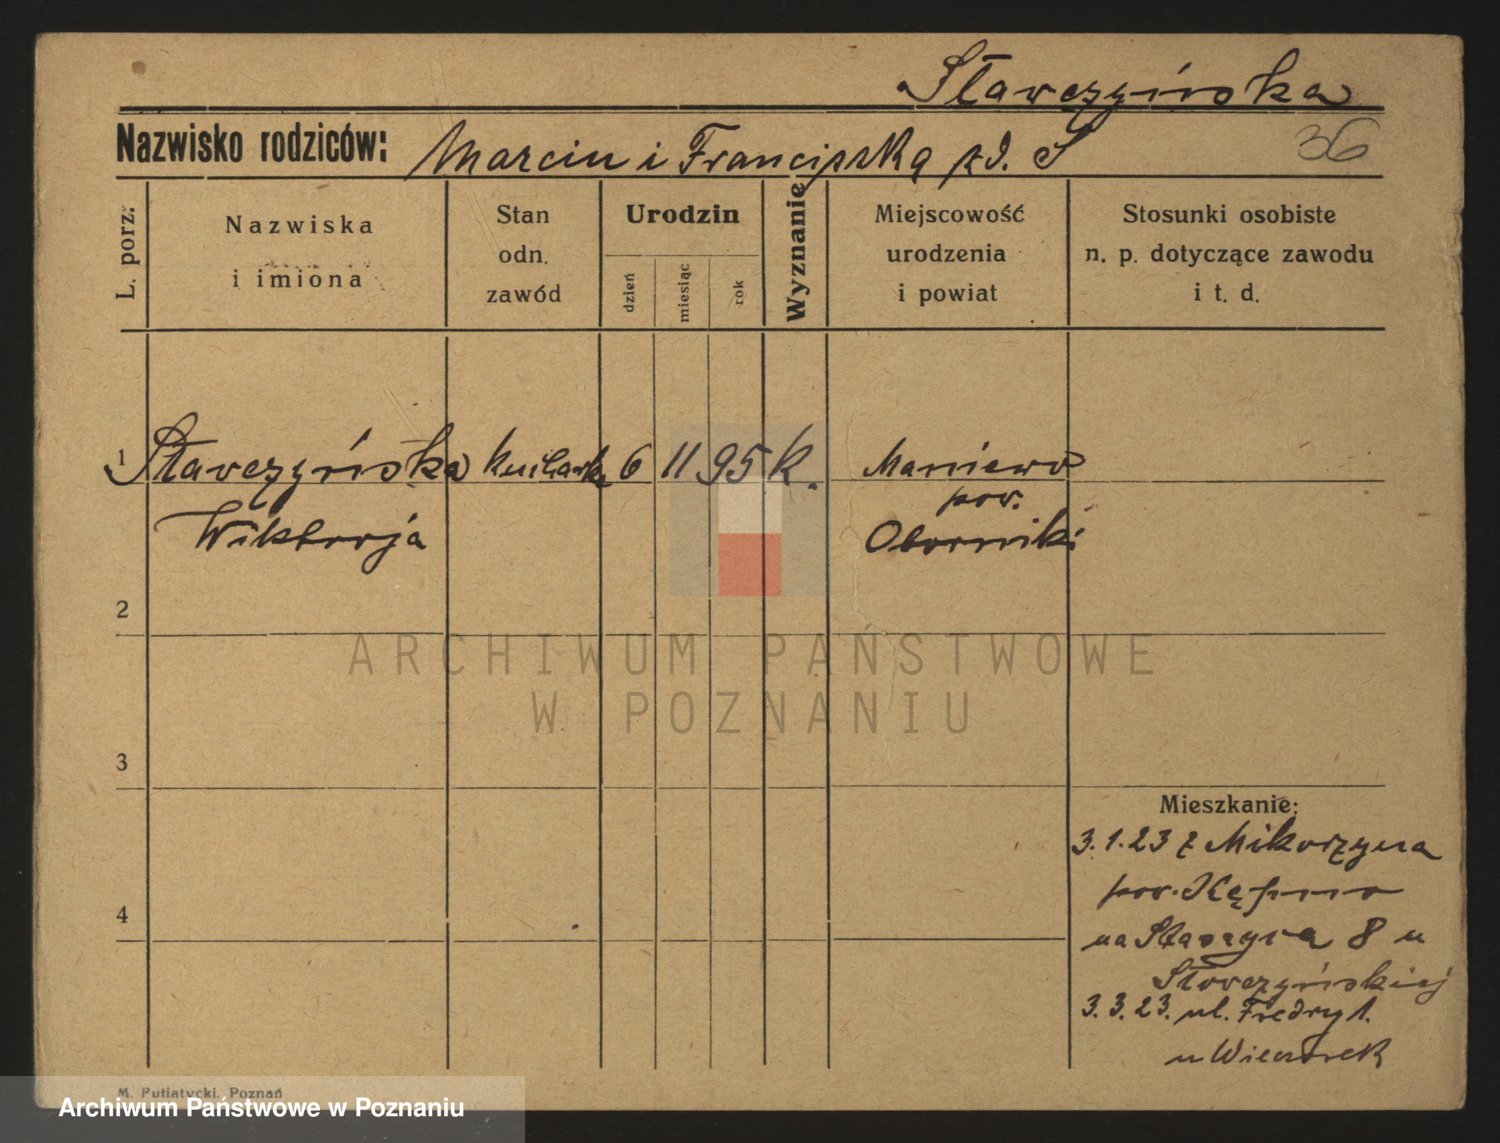 Sławczyńska
Nazwisko rodziców: Marcin i Franciszka zd. S
36
L. porz. Nazwiska i imiona Stan odn. zawód Urodzin dzień miesiąc rok Wyznanie Miejscowość urodzenia i powiat Stosunki osobiste n. p. dotyczące zawodu i t. d.
1 Sławczyńska kucharka 6 11 95 k. Maniewo
pow.
Wiktorja Oborniki
2
3
Mieszkanie:
3.1.23 z Mikorzyna
pow. Kępno
4
na Staszyca 8 u
Sławczyńskiej
3.3.23. ul. Fredry 1.
u Wieczorek
M. Putiatycki, Poznań
ARCHIWUM PAŃSTWOWE
W POZNANIU
Archiwum Państwowe w Poznaniu